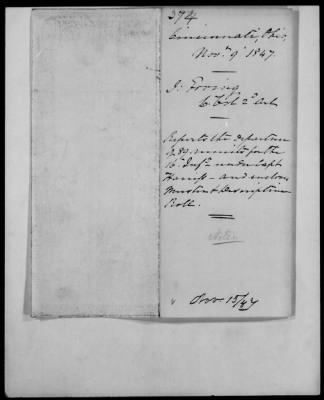 374
Cincinnati, Ohio,
Nov. 9' 1847.
J. Erving
Lt. Col. 2d Art
Reports the departure
of 89 recruits for the
16th Inf. under Capt
and encloses
Muster & Descriptive
Roll.
Noted
Nov 15/47